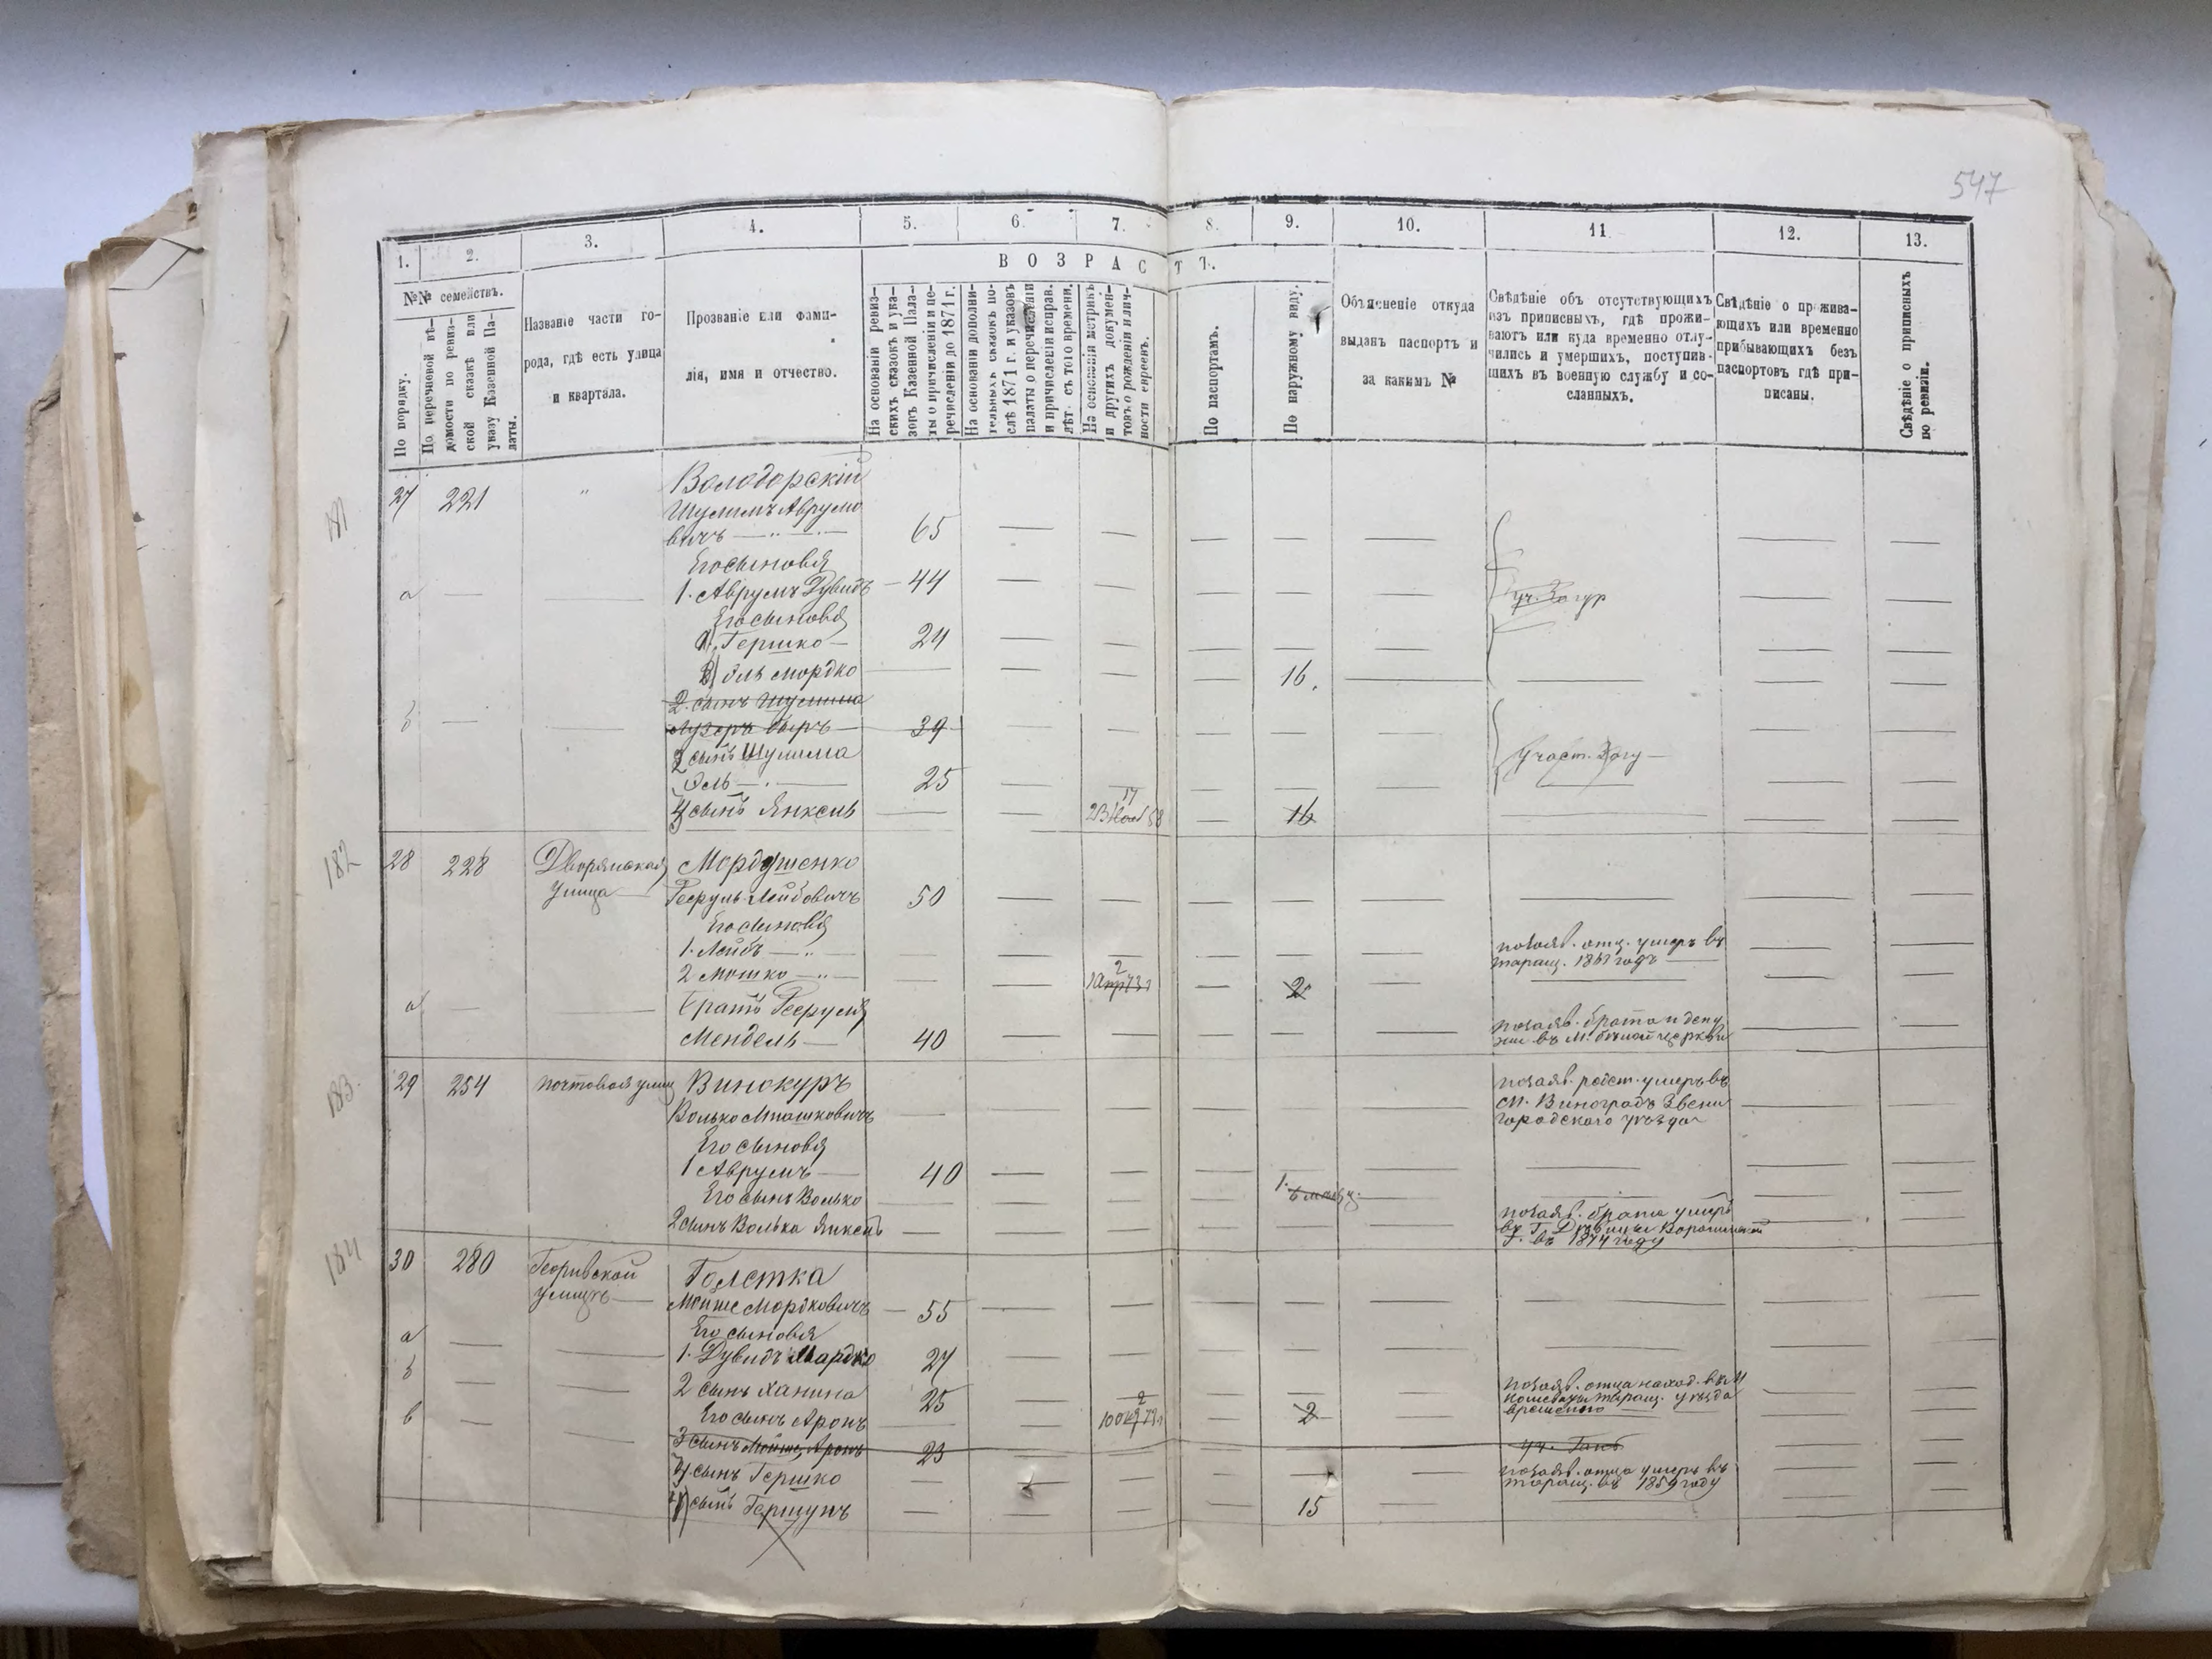 547
1.
2.
3.
4.
5.
6.
7.
8.
9.
10.
11
12.
13.
ВОЗРАСТЪ.
№№ семействъ.
По порядку.
По перечневой вѣ-
домости по ревиз-
ской сказкѣ или
указу Казенной Па-
латы.
Названіе части го-
рода, гдѣ есть улица
и квартала.
Прозваніе или фами-
лія, имя и отчество.
На основаніи ревиз-
скихъ сказокъ и ука-
зовъ Казенной Пала-
ты о причисленіи и пе-
речисленіи до 1871 г.
На основаніи дополни-
тельныхъ сказокъ по-
слѣ 1871 г. и указовъ
палаты о перечисленіи
и причисленіи исправ.
лѣт. съ того времени.
На основаніи метрикъ
и другихъ докумен-
товъ о рожденіи и лич-
ности евреевъ.
По паспортамъ.
По наружному виду.
Объясненіе откуда
выданъ паспортъ и
за какимъ №
Свѣдѣніе объ отсутствующихъ
изъ приписныхъ, гдѣ прожи-
ваютъ или куда временно отлу-
чились и умершихъ, поступив-
шихъ въ военную службу и со-
сланныхъ.
Свѣдѣніе о прожива-
ющихъ или временно
прибывающихъ безъ
паспортовъ гдѣ при-
писаны.
Свѣдѣніе о приписныхъ
по ревизіи.
181
27 221 " Володорскій
Шулимъ Аврумо
вичъ 65
Его сыновья
а 1. Аврумъ Дувидъ 44
Его сыновья
Гершко 24
Мордко 16.
2. сынъ Шулима
б 39
сынъ Шулима
Эль 25
сынъ Янкель 17 16
182
28 228 Дворянская Мордушенко
улица Лейбовичъ 50
Его сыновья
1. Лейбъ позаяв. отц. умеръ въ
таращ. 1861 годъ
2 Мошко 2 2
а братъ
позаяв. брата
Мендель 40
183
29 254 почтовая улиц Винокуръ позаяв. родст. умеръ въ
Волько Мошковичъ м. Виноградъ Звени
городского уѣзда
Его сыновья
1 Аврумъ 40
Его сынъ Волько 1.
2 сынъ Волька Янкель позаяв. брата умеръ
въ 1874 году
184
30 280 Голетка
улицѣ Мошко Мордковичъ 55
Его сыновья
а 1. Дувидъ Мордко 27
б 2 сынъ Ханина 25 позаяв. отца наход. въ м
таращ. уѣзда
временно
в Его сынъ Аронъ 2 2
3 сынъ Аронъ 23
сынъ Гершко позаяв. отца умеръ въ
таращ. въ 1859 году
сынъ Гершунъ 15